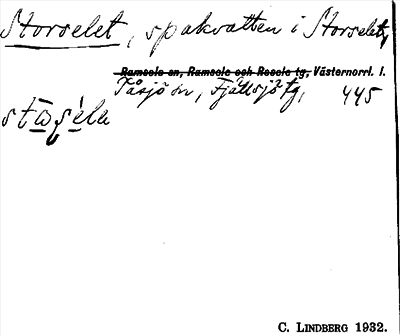 Storselet, spakvatten i Storselet,
Ramsele sn, Ramsele och Resele tg, Västernorrl. l.
Tåsjö sn, Fjällsjö tg, 445
stωṣéla
C. LINDBERG 1932.